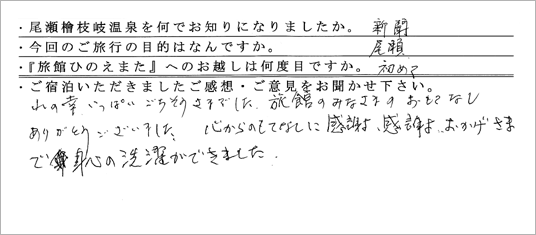 ・尾瀬檜枝岐温泉を何でお知りになりましたか。 新聞
・今回のご旅行の目的はなんですか。 尾瀬
・『旅館ひのえまた』へのお越しは何度目ですか。 初めて
・ご宿泊いただきましたご感想・ご意見をお聞かせ下さい。
山の幸いっぱいごちそうさまでした。旅館のみなさまのおもてなし
ありがとうございました。心からのもてなしに感謝、感謝、おかげさま
で身心の洗濯ができました。